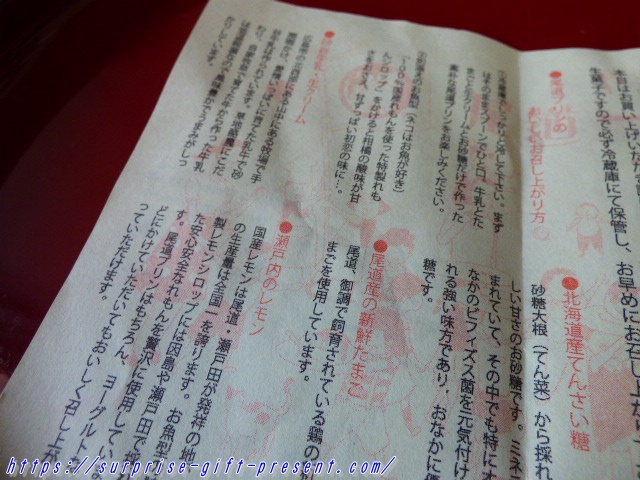 本日はお買い上げいただき
生菓子ですので必ず冷蔵庫にて保管し、お早めにお召し上がり
●尾道プリンの
おいしいお召し上がり方
①冷蔵庫でしっかりと冷して下さい。まず
はそのままをスプーンでひと口、牛乳とた
まごと生クリームとお砂糖だけで作った
素朴な尾道プリンをお楽しみください。
お魚型(ネコはお魚が好き)
「100%国産れもんを使った特製れも
んシロップ」をかけると柑橘の酸味が甘
甘ずっぱい初恋の味に…。
生クリーム
広島市の北西部にある山中にある牧場で手
●北海道産てんさい糖
砂糖大根(てん菜)から採れ
しい甘さのお砂糖です。ミネ
まれていて、その中でも特にオ
なかのビフィズス菌を元気付け
れる強い味方であり、おなかに優
糖です。
●尾道産の新鮮たまご
尾道、御調で飼育されている鶏の
まごを使用しています。
●瀬戸内のレモン
国産レモンは尾道・瀬戸田が発祥の地
の生産量は全国一を誇ります。お魚型
製レモンシロップには因島や瀬戸田で採
た安心安全なれもんを贅沢に使用していま
す。尾道プリンはもちろん、ヨーグルトな
どにかけていただいてもおいしく召し上が
っていただけます。
https://surprise-gift-present.com/